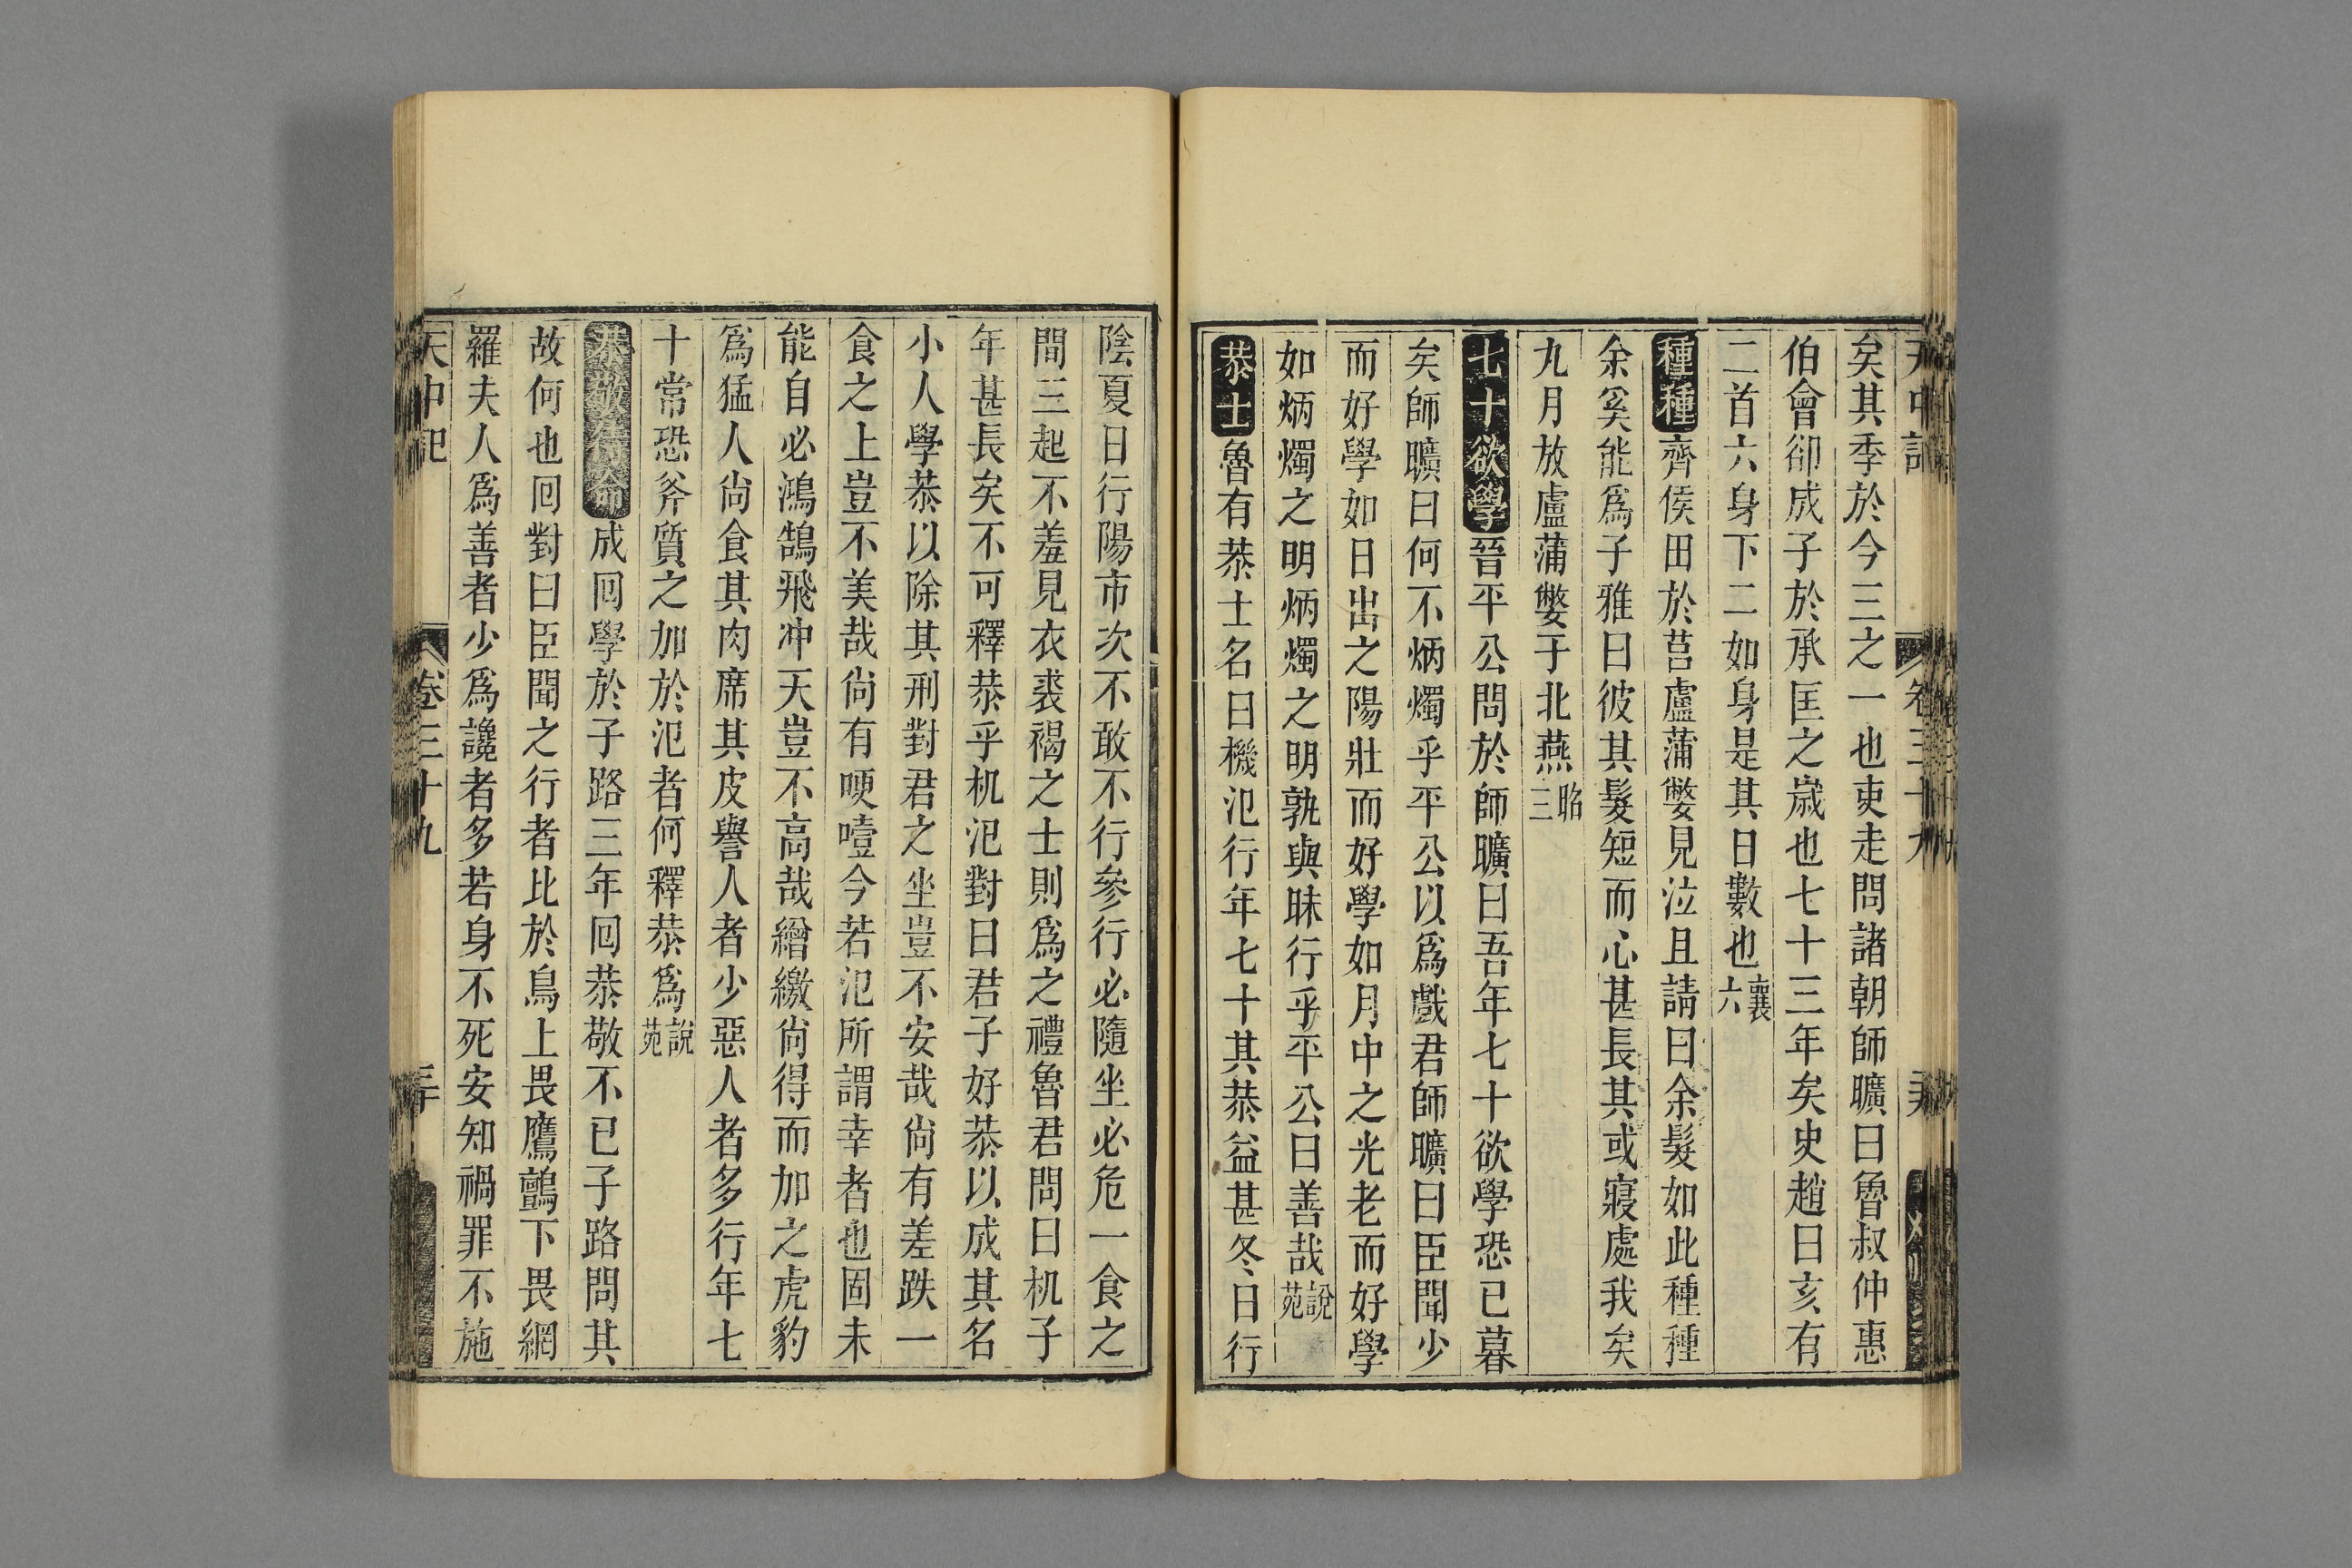 天中記 卷三十九
矣其季於今三之一也吏走問諸朝師曠曰魯叔仲惠
伯會卻成子於承匡之歲也七十三年矣史趙曰亥有
二首六身下二如身是其日數也襄六
種種齊侯田於莒盧蒲嫳見泣且請曰余髮如此種種
余奚能爲子雅曰彼其髮短而心甚長其或寢處我矣
九月放盧蒲嫳于北燕昭三
七十欲學晉平公問於師曠曰吾年七十欲學恐已暮
矣師曠曰何不炳燭乎平公以爲戲君師曠曰臣聞少
而好學如日出之陽壯而好學如月中之光老而好學
如炳燭之明炳燭之明孰與昧行乎平公曰善哉說苑
恭士魯有恭士名曰機氾行年七十其恭益甚冬日行
陰夏日行陽市次不敢不行參行必隨坐必危一食之
間三起不羞見衣裘褐之士則爲之禮魯君問曰机子
年甚長矣不可釋恭乎机氾對曰君子好恭以成其名
小人學恭以除其刑對君之坐豈不安哉尙有差跌一
食之上豈不美哉尙有哽噎今若氾所謂幸者也固未
能自必鴻鵠飛冲天豈不高哉繒繳尙得而加之虎豹
爲猛人尙食其肉席其皮譽人者少惡人者多行年七
十常恐斧質之加於氾者何釋恭爲說苑
恭敬待命成囘學於子路三年囘恭敬不已子路問其
故何也囘對曰臣聞之行者比於鳥上畏鷹鸇下畏網
羅夫人爲善者少爲讒者多若身不死安知禍罪不施
天中記 卷三十九 三十